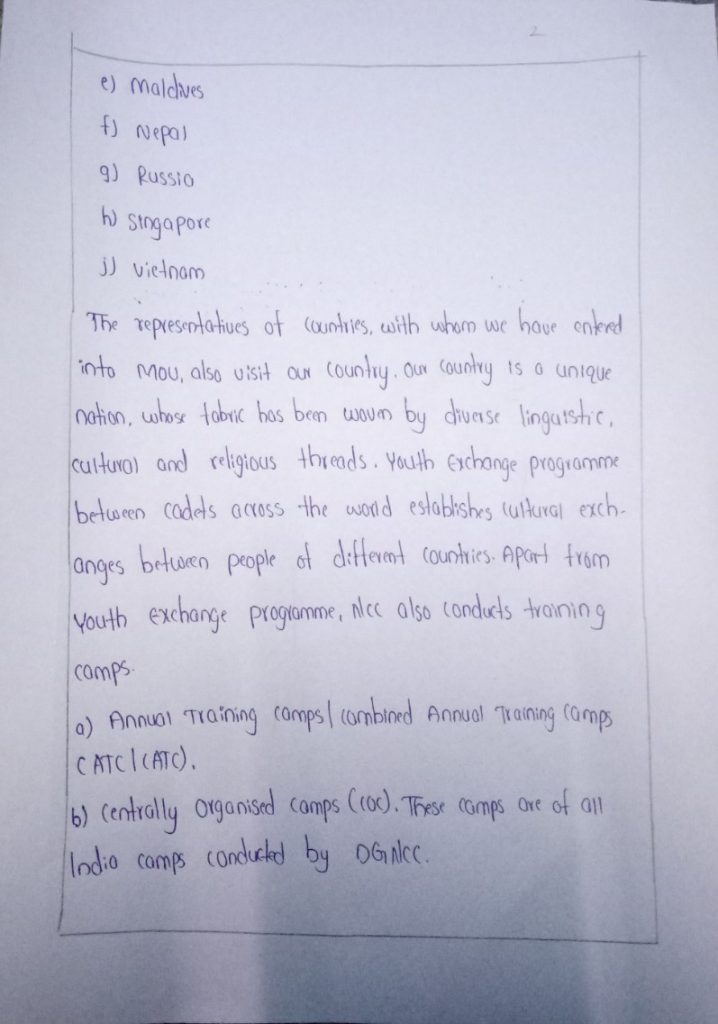 2
e) Maldives
f) Nepal
g) Russia
h) Singapore
j) Vietnam
The representatives of countries, with whom we have entered
into MOU, also visit our country. Our country is a unique
nation, whose fabric has been woven by diverse linguistic,
cultural and religious threads. Youth Exchange programme
between cadets across the world establishes cultural exch-
anges between people of different countries. Apart from
Youth exchange programme, NCC also conducts training
camps.
a) Annual Training camps/combined Annual Training camps
(ATC/CATC).
b) Centrally Organised camps (COC). These camps are of all
India camps conducted by DGNCC.